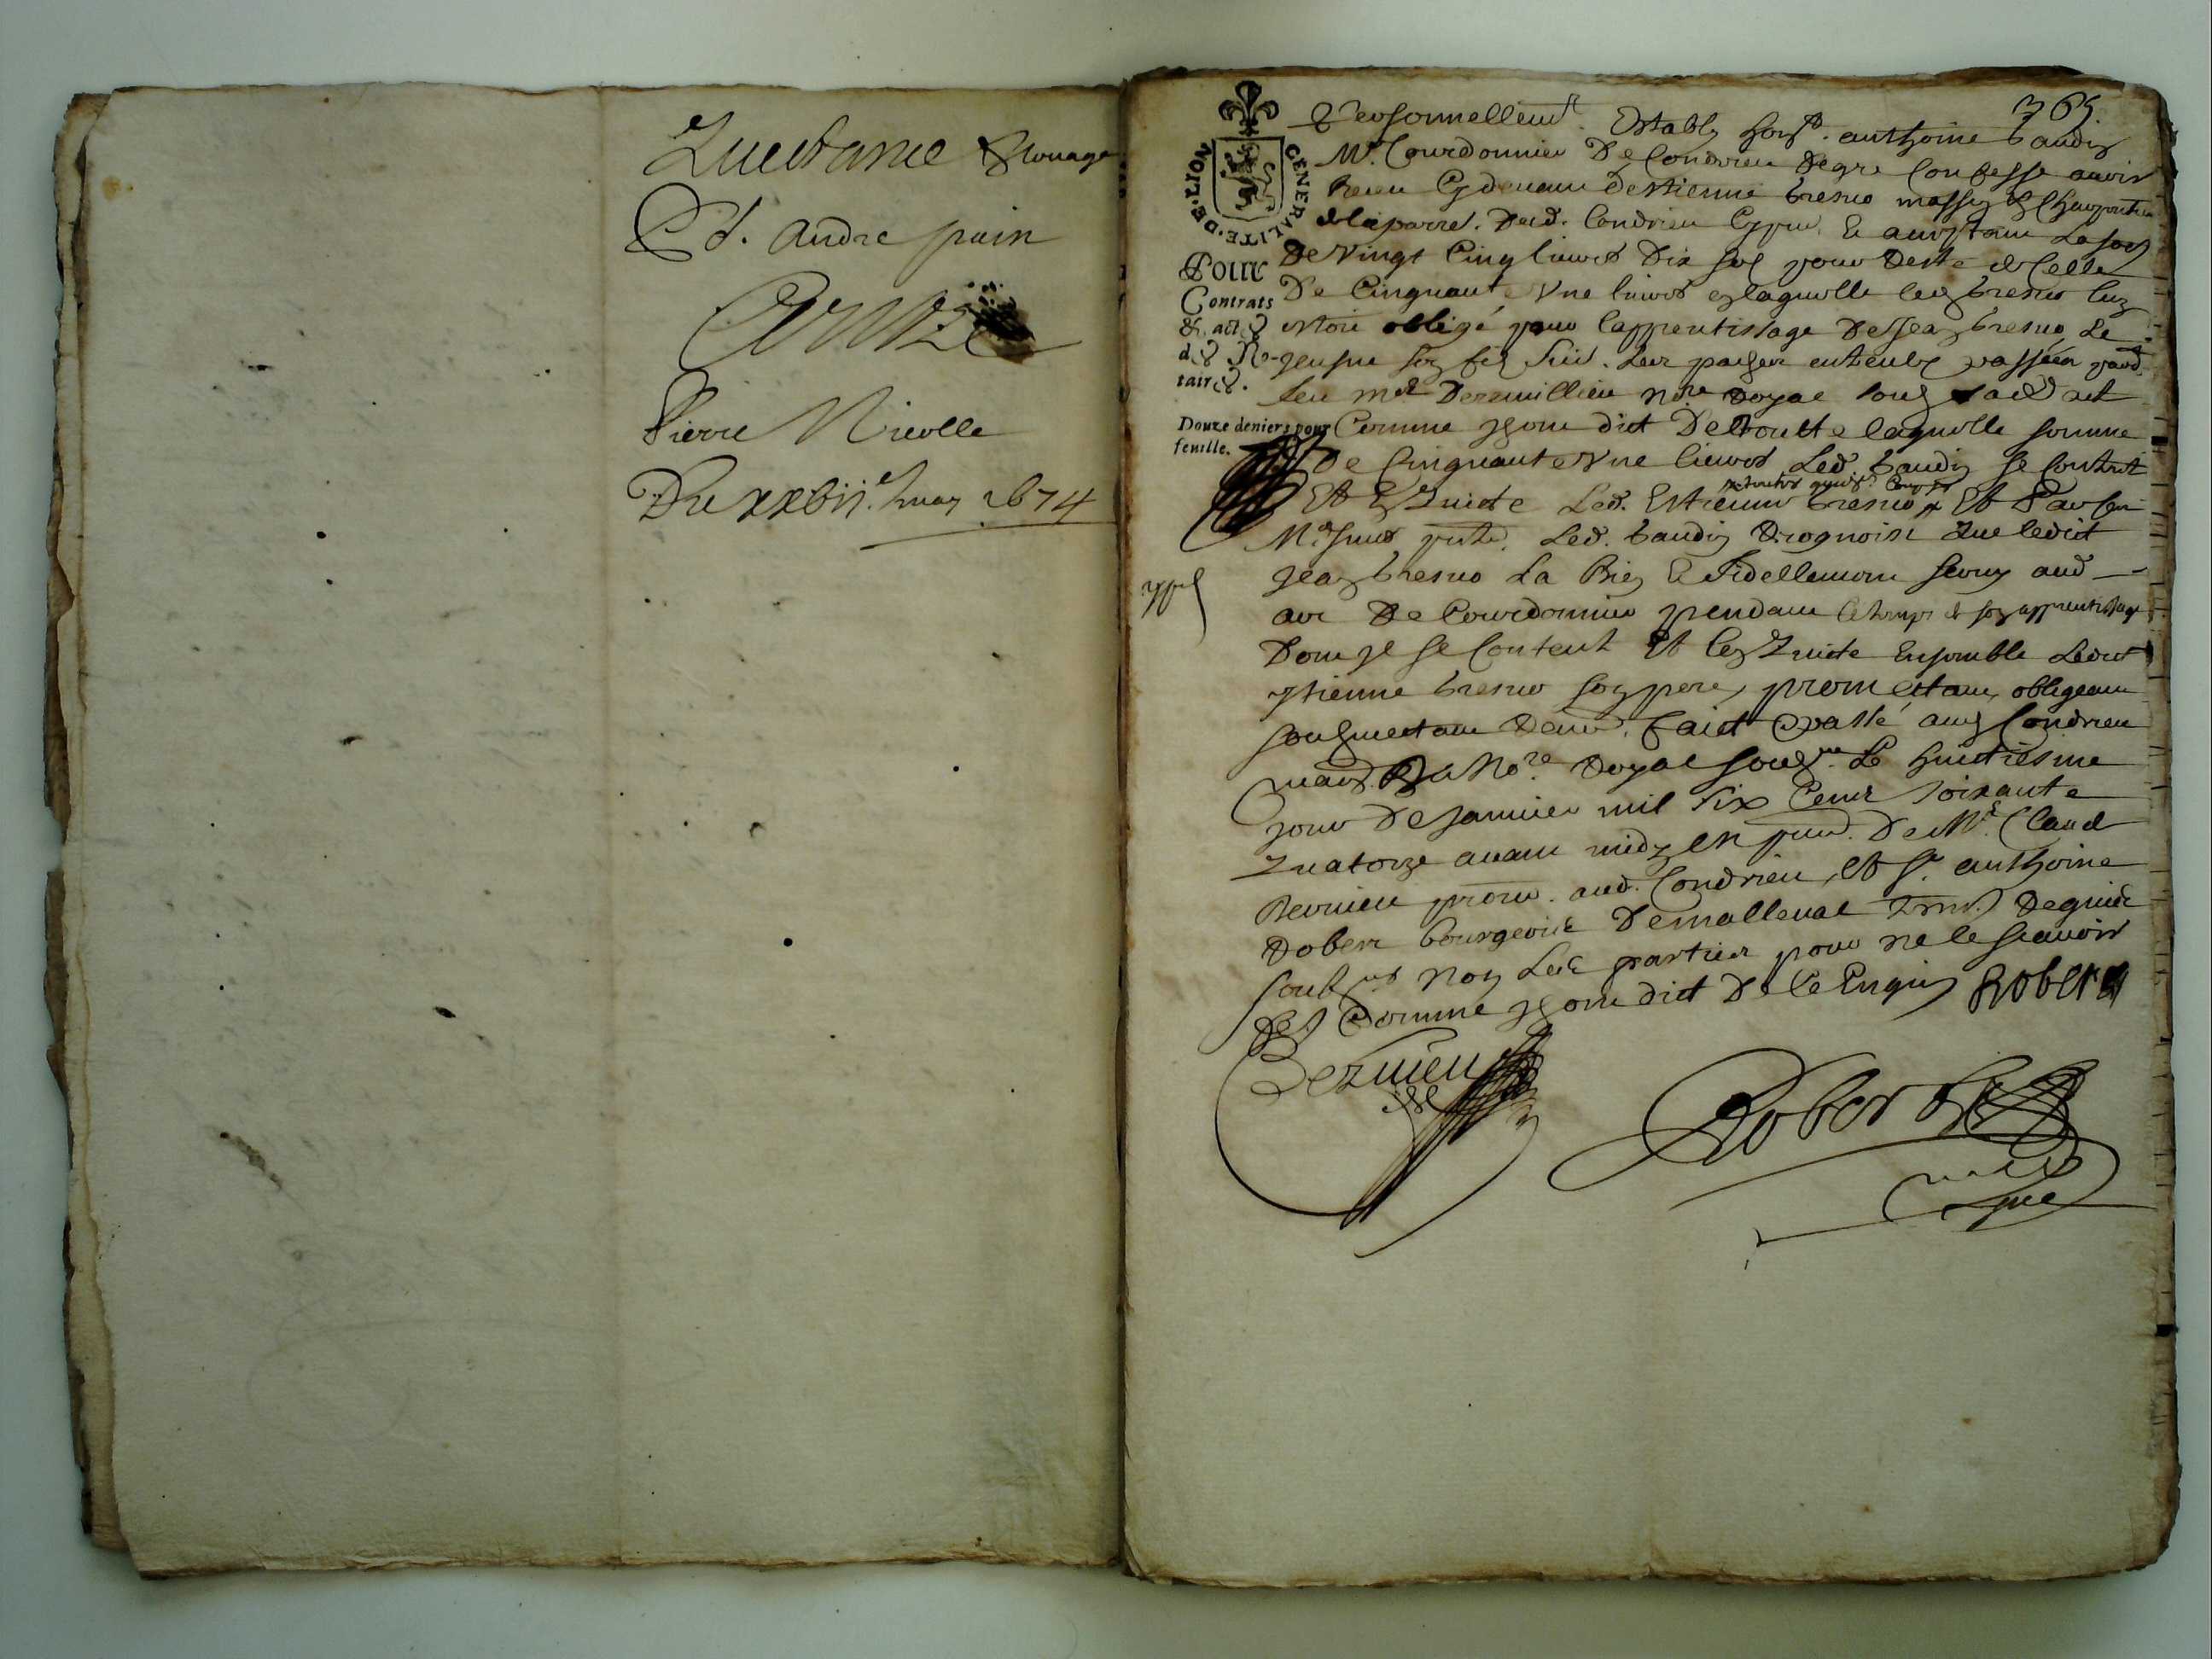 Quictance
Sr. André pain
Contre
Pierre Nicolle
Du xxbije may 1674
365
GENERALITE DE LION
POUR
Contrats
& actes
des No-
taires.
Douze deniers pour
feuille.
Personnellemt Estably honble anthoine baudin
Mre Courdonnier De Condrieu Degre Confesse avoir
Receu Cydevant destienne bresno masson & Charpentier
dud. Condrieu La som
De Vingt Cinq livres Dix sols pour Reste de Celle
De Cinquante Une livres en laquelle led bresno luy
estoit obligé pour l'apprentissage De Jean bresno Le
Jeusne son fils par
feu Me Nore Royal
Comme Ils ont dict Delaquelle somme
De Cinquante Une livres Led. baudin se Contente
Et En Quicte Led. Estienne bresno Et Par Ces
Mesmes pntes Led. baudin Recognoist Que ledict
Jean bresno La Bien & fidellement servy aud
art De Courdonnier pendant le temps de son apprentissage
Dont Il se Content Et len Quicte Ensemble Ledict
Estienne bresno son pere, promettant, obligeant
soubmettant Renonc. faict & passé aud Condrieu
Nore Royal soubz Le huictiesme
jour De Janvier mil Six Cent Soixante
Quatorze avant midy En pnce De Me Claude
Bernieu aud. Condrieu, Et Sr anthoine
Robert bourgeois De malleval
soubznes Non Les parties pour ne le scavoir
Comme Ils ont dict De Ce Enquis Robert
Bernieu
Robert